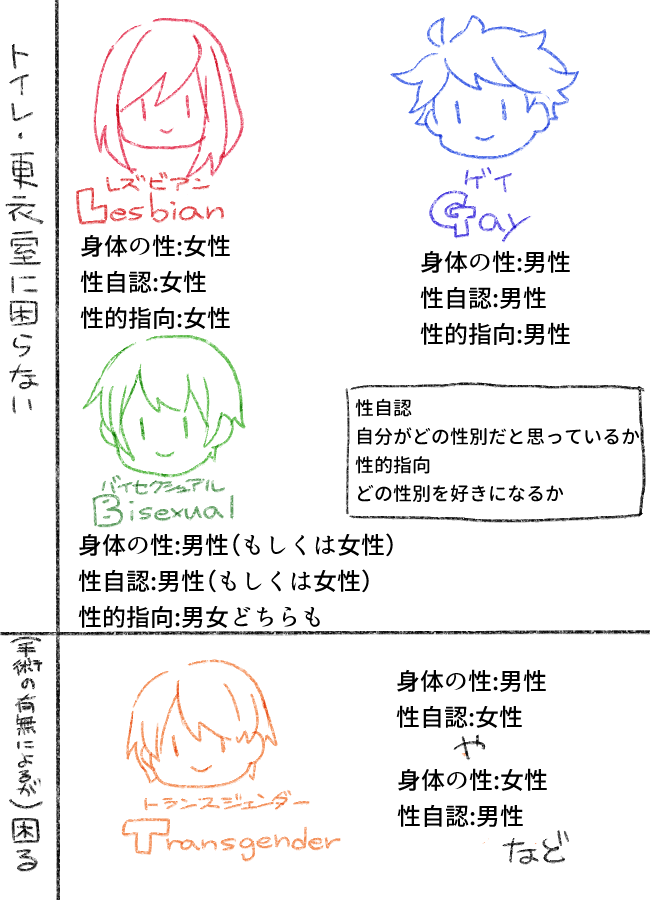 トイレ・更衣室に困らない
レズビアン
Lesbian
身体の性:女性
性自認:女性
性的指向:女性
ゲイ
Gay
身体の性:男性
性自認:男性
性的指向:男性
バイセクシュアル
Bisexual
身体の性:男性(もしくは女性)
性自認:男性(もしくは女性)
性的指向:男女どちらも
性自認
自分がどの性別だと思っているか
性的指向
どの性別を好きになるか
(手術の有無によるが)困る
トランスジェンダー
Transgender
身体の性:男性
性自認:女性
や
身体の性:女性
性自認:男性
など